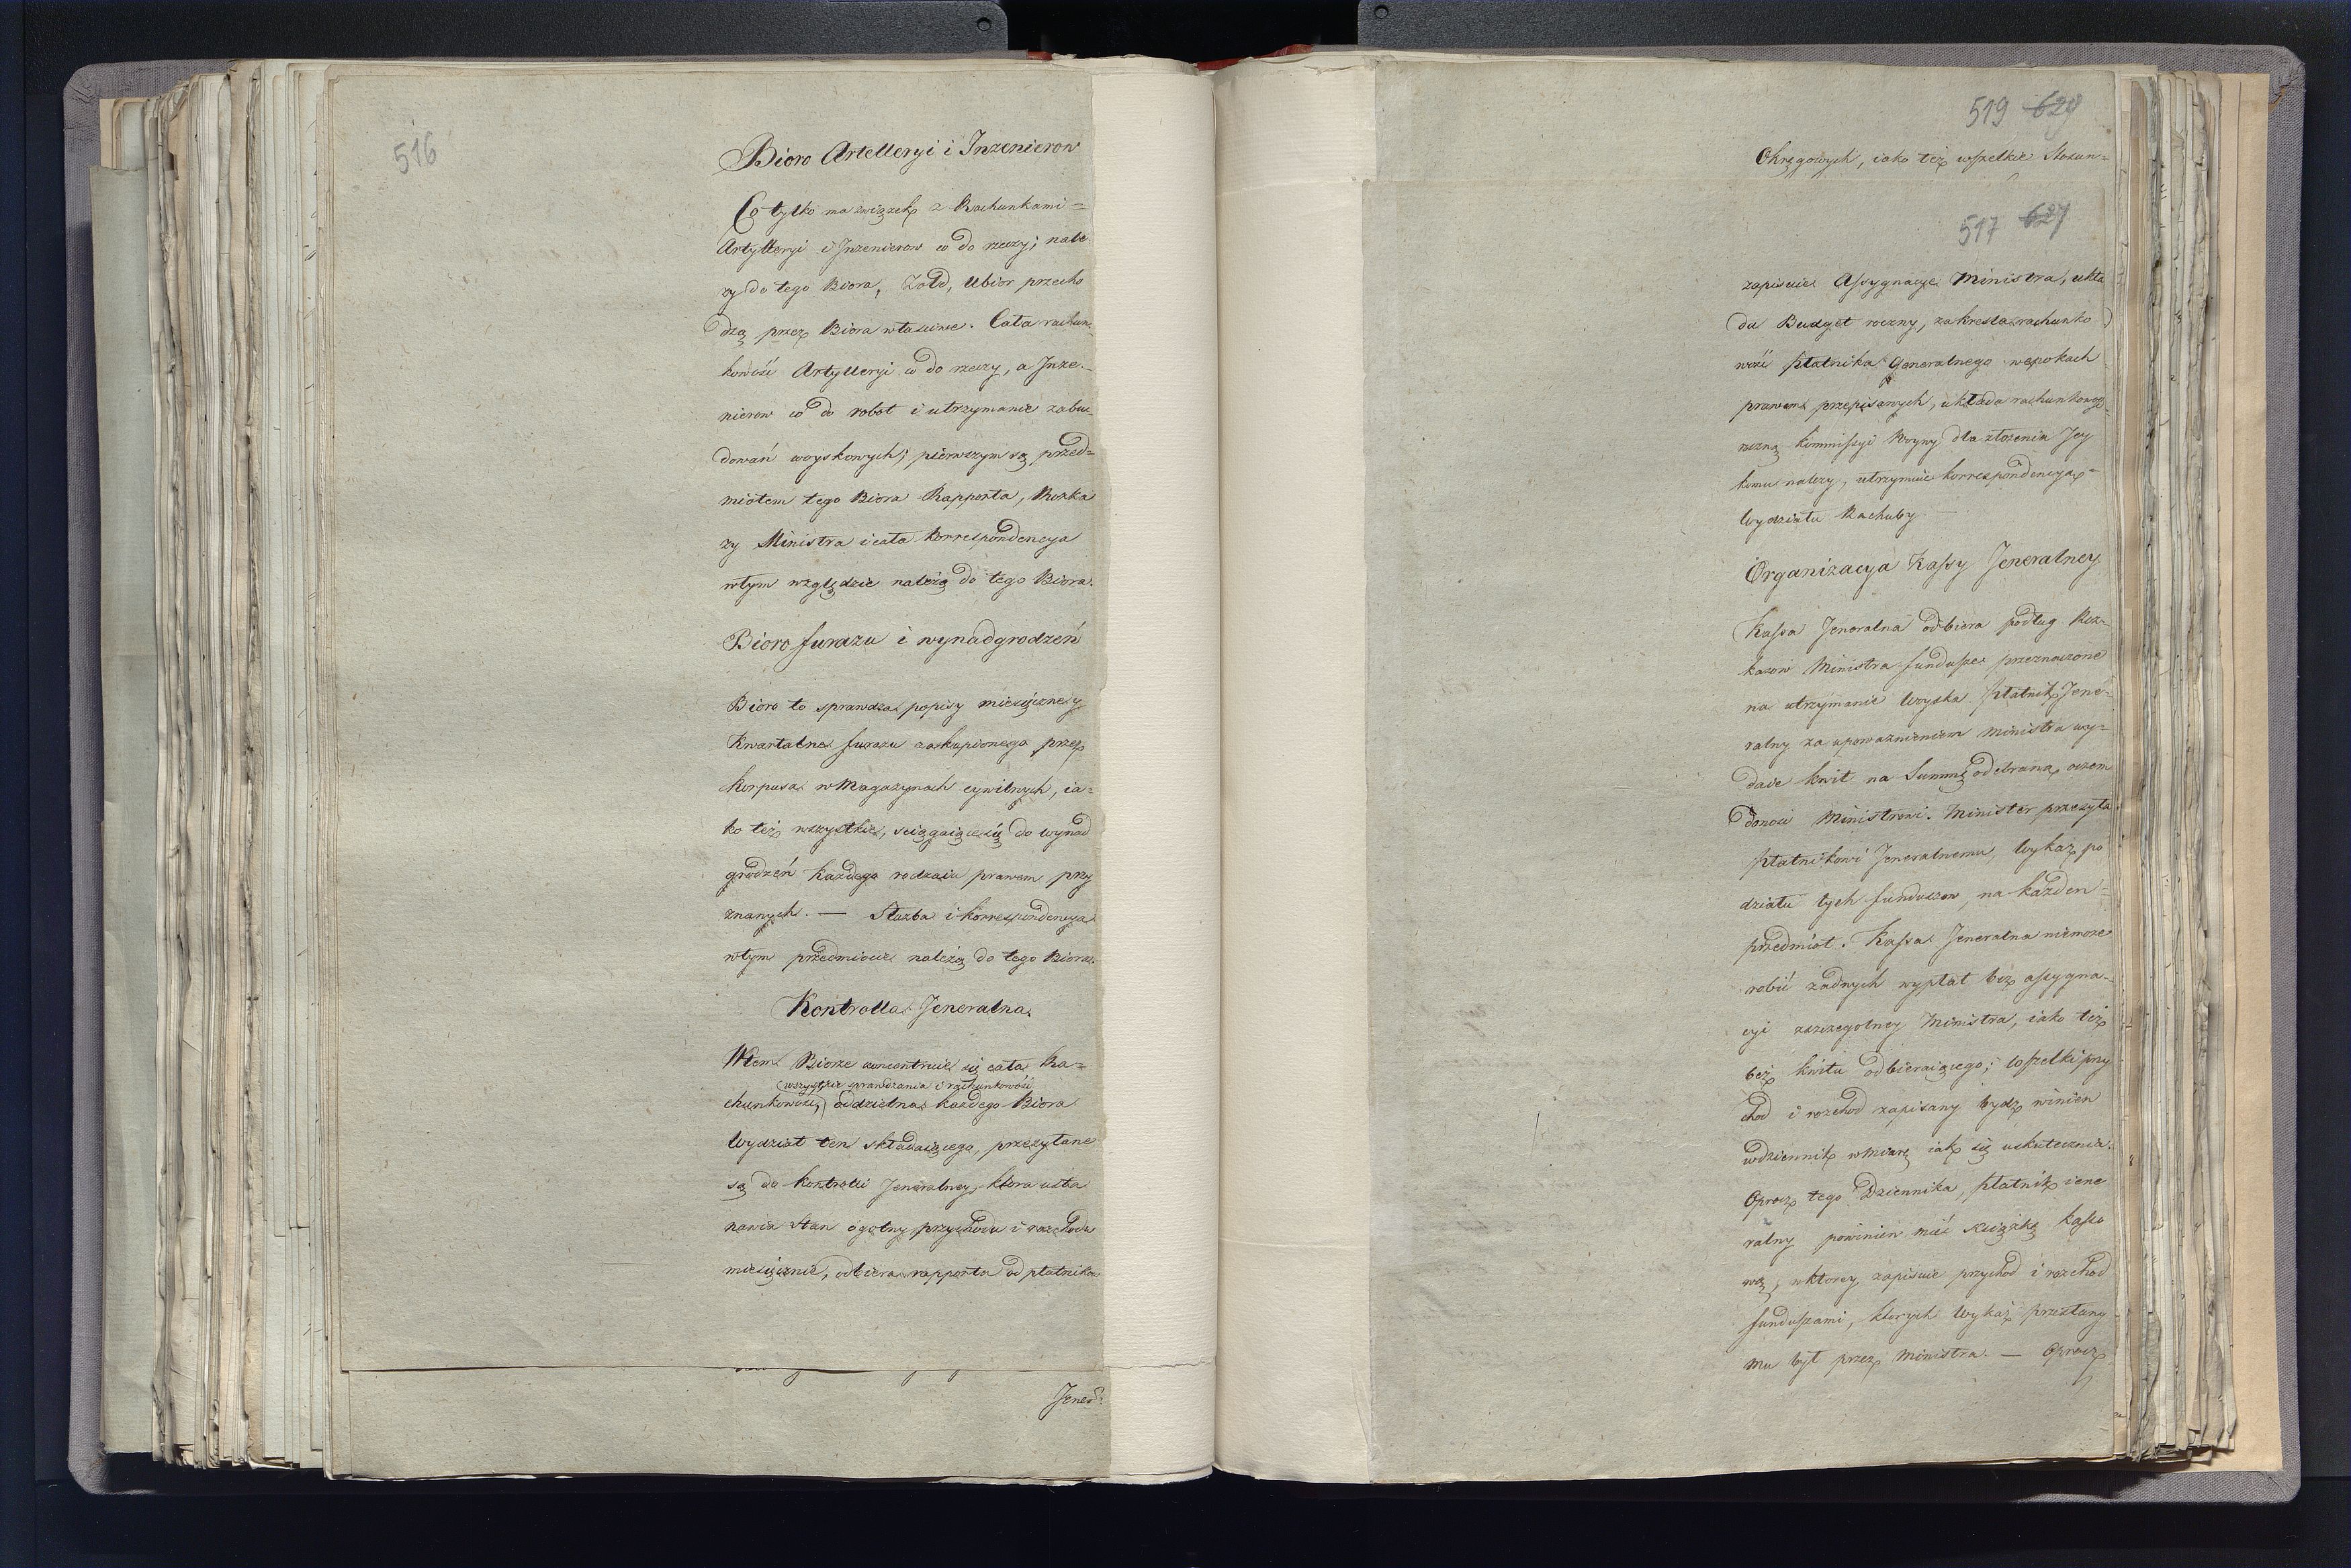 516
Bioro Artelleryi i Inzenierow
Co tylko ma związek z Rachunkami =
Artylleryi i Inzenierow co do rzeczy; nale
zy do tego Biora, Zołd, Ubior przecho
dzą przez Biora własciwe. Cała rachun-
kowość Artylleryi co do rzeczy, a Inze-
nierow co do robot i utrzymanie zabu-
dowań woyskowych; pierwszym są przed=
miotem tego Biora Rapporta, Rozka
zy Ministra i cała korrespondencya
wtym względzie należą do tego Biora.
Bioro furazu i wynadgrodzeń
Bioro to sprawdza popisy miesięczne y
Kwartalne furazu zakupionego przez
korpusa w Magazynach cywilnych, ia-
ko też wszystkie, sciągaiące się do wynad
grodzeń każdego rodzaiu prawem przy
znanych. — Służba i korrespondencya
wtym przedmiocie należą do tego Biora.
Kontrolla Jeneralna.
Wtem Biorze koncentruie się cała Ra-
wszystkie sprawdzania i rachunkowości
chunkowość, oddzielna każdego Biora
Wydział ten składaiącego, przesyłane
są do Kontrolli Jeneralney, ktora usta
nawia Stan ogolny przychodu i rozchodu
miesięcznie, odbiera rapporta od płatnikow
Jener:
519 629
Okręgowych, iako też wszelkie Stosun=
517 627
zapisuie Assygnacye Ministra, ukła
da Budget roczny, zakresla rachunko
wość płatnika Generalnego wepokach
prawem przepisanych, układa rachunkowość
roczną kommissyi Woyny dla złożenia Jey
komu należy, utrzymuie korrespondencyą =
Wydziału Rachuby. —
Organizacya Kassy Jeneralney
Kassa Jeneralna odbiera podług Roz-
kazow Ministra fundusze przeznaczone
na utrzymanie Woyska. Płatnik Jene-
ralny za upoważnieniem Ministra wy-
daie kwit na Summę odebraną, oczem
donosi Ministrowi. Minister przesyła
płatnikowi Jeneralnemu, Wykaz po
działu tych funduszow, na każden =
przedmiot. Kassa Jeneralna niemoże
robić żadnych wypłat bez assygna-
cyi szczegolney Ministra, iako też
bez kwitu odbieraiącego; Wszelki przy
chod i rozchod zapisany bydz winien
wdziennik wmiarę iak się uskutecznia.
Oprocz tego Dziennika, płatnik iene
ralny powinien mieć xsiążkę kasso
wą, wktorey zapisuie przychod i rozchod
funduszami, ktorych Wykaz przesłany
mu był przez Ministra. — Oprocz